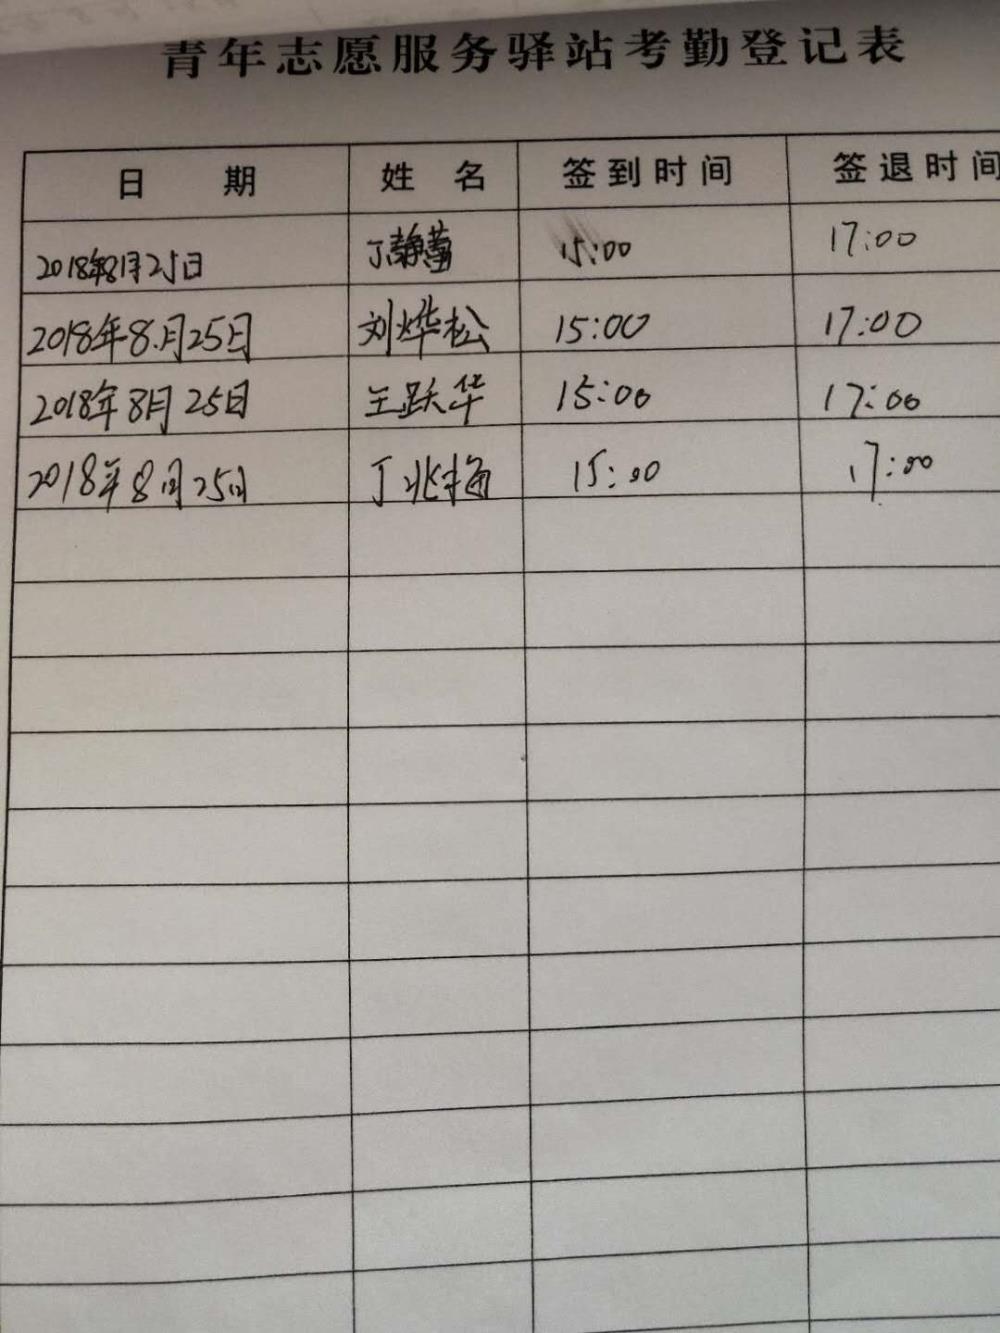 青年志愿服务驿站考勤登记表
日 期 姓 名 签到时间 签退时间
2018年8月25日 丁静 15:00 17:00
2018年8月25日 刘烨松 15:00 17:00
2018年8月25日 王跃华 15:00 17:00
2018年8月25日 丁兆梅 15:00 17:00